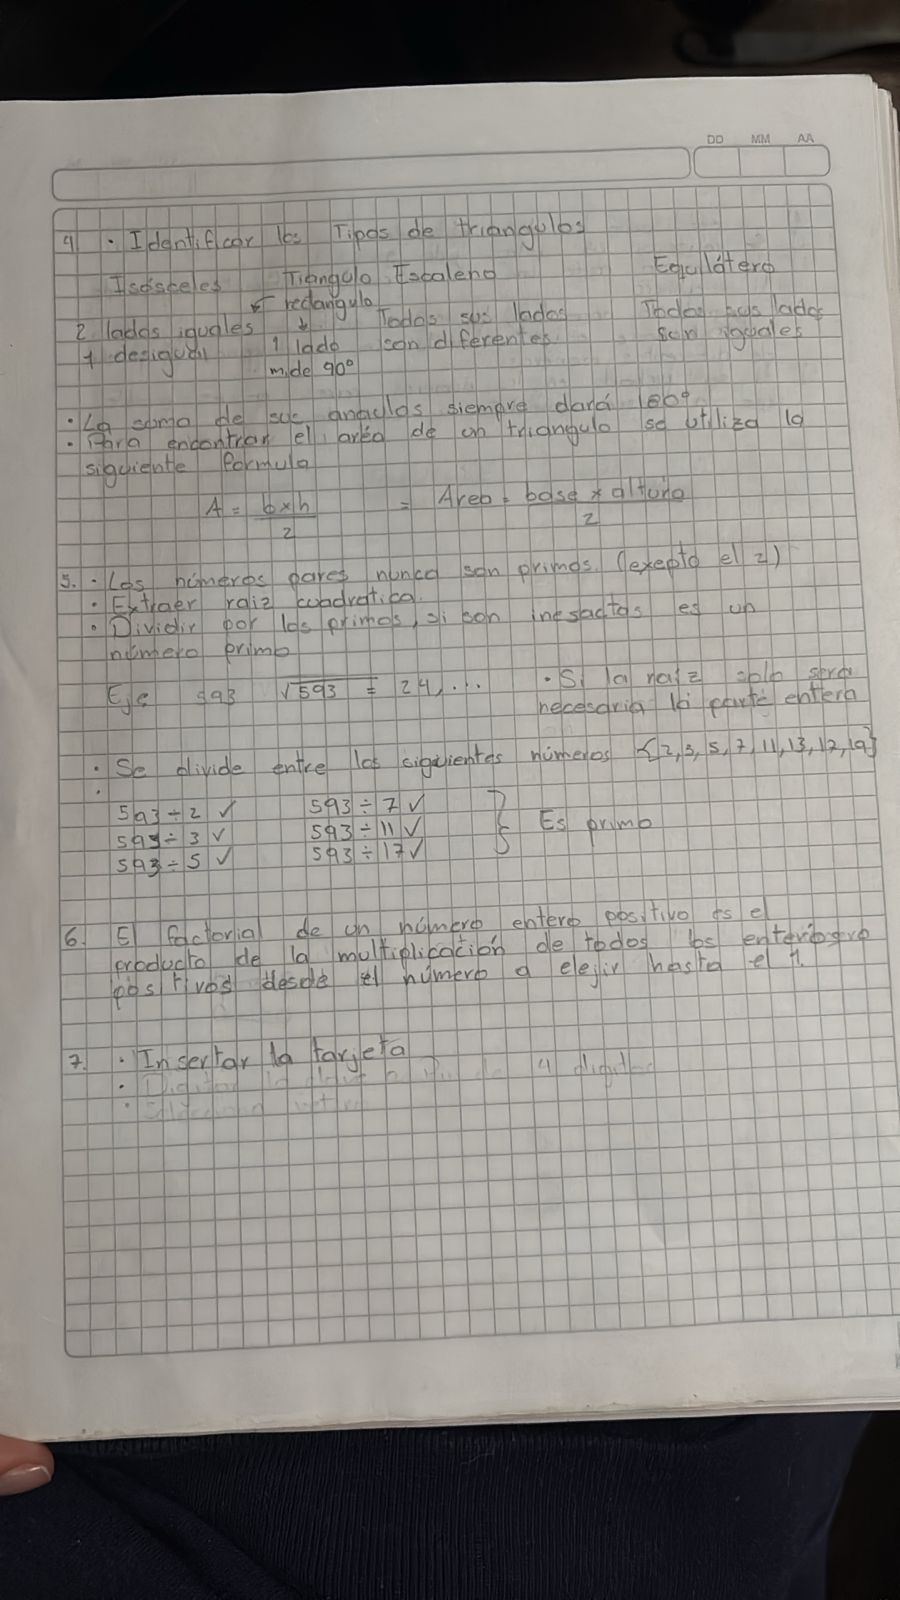 DD MM AA
4. · Identificar los Tipos de triangulos
Isósceles Triangulo Escaleno Equilátero
rectangulo
2 lados iguales Todos sus lados Todos sus lados
1 desigual 1 lado son diferentes son iguales
mide 90°
· La soma de sus angulos siempre dará 180°
· Para encontrar el aréa de un triangulo se utiliza la
siguiente formula
A = b x h / 2 = Area = base x altura / 2
5. · Los números pares nunca son primos (exepto el 2)
· Extraer raiz cuadratica
· Dividir por los primos, si son inesactas es un
número primo
Eje 593 √593 = 24,... · Si la raiz solo sera
necesaria la parte entera
· Se divide entre los siguientes números {2,3,5,7,11,13,17,19}
593 ÷ 2 ✓ 593 ÷ 7 ✓
593 ÷ 3 ✓ 593 ÷ 11 ✓ } Es primo
593 ÷ 5 ✓ 593 ÷ 17 ✓
6. El factorial de un número entero positivo es el
producto de la multiplicación de todos los enteros
positivos desde el número a elejir hasta el 1.
7. · Insertar la tarjeta
· Digitar la clave 4 digitos